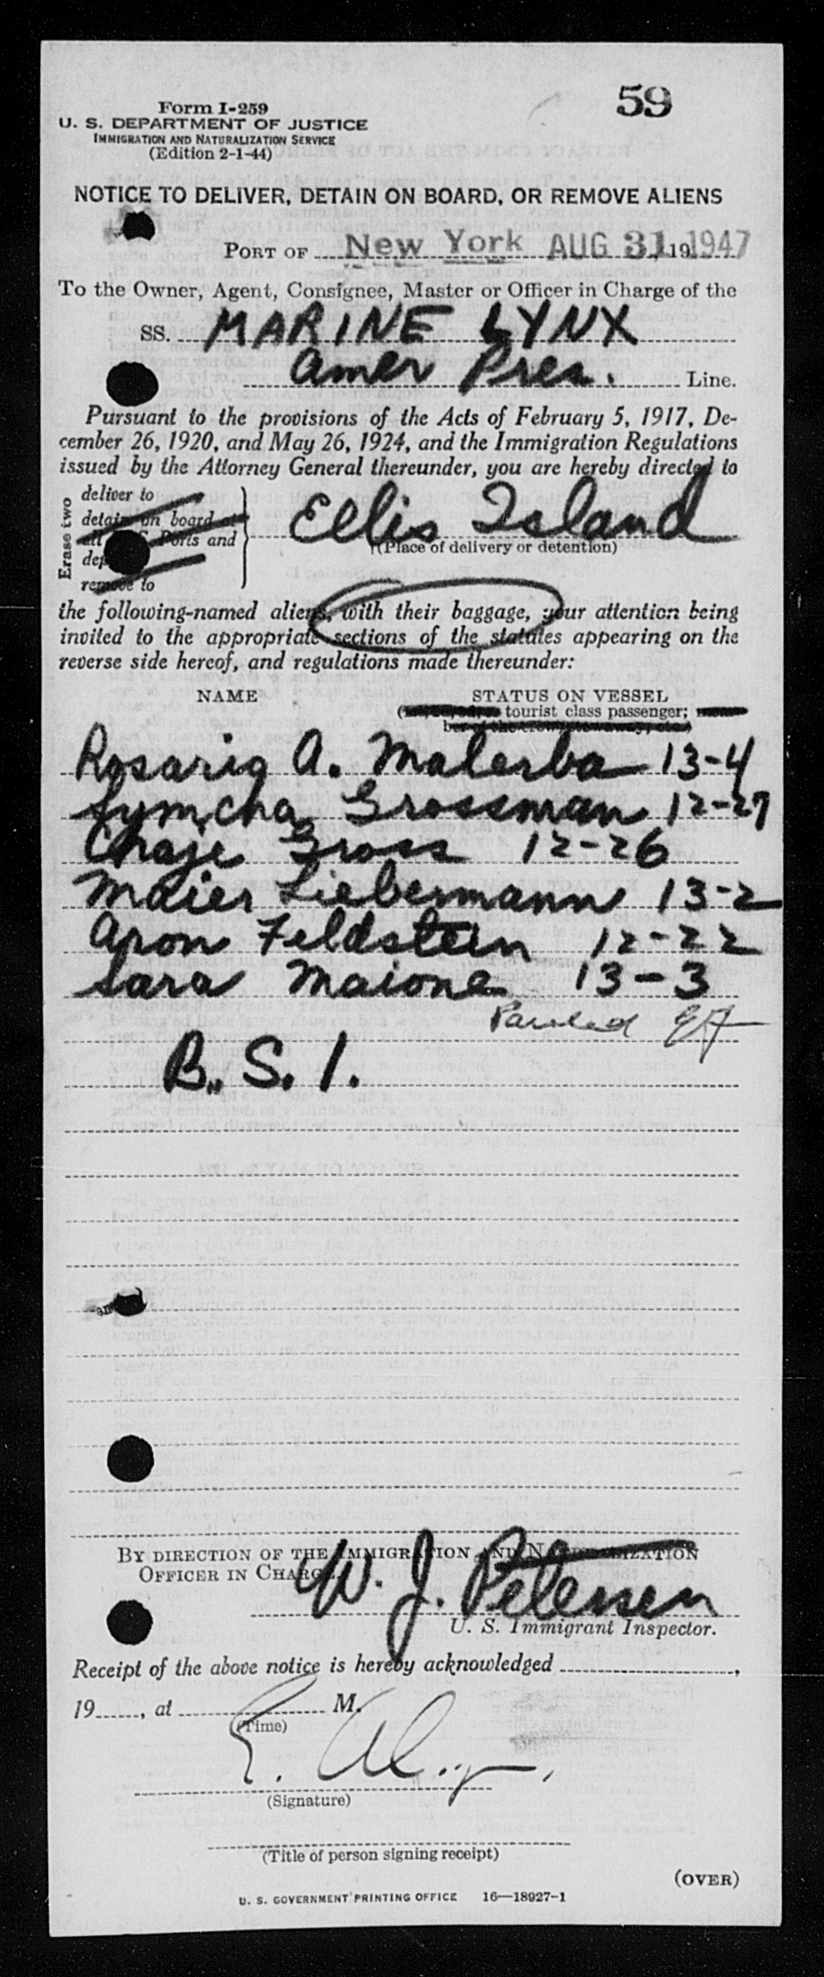 59
Form I-259
U. S. DEPARTMENT OF JUSTICE
IMMIGRATION AND NATURALIZATION SERVICE
(Edition 2-1-44)
NOTICE TO DELIVER, DETAIN ON BOARD, OR REMOVE ALIENS
PORT OF New York AUG 31, 19 1947
To the Owner, Agent, Consignee, Master or Officer in Charge of the
SS. MARINE LYNX
Amer Pres. Line.
Pursuant to the provisions of the Acts of February 5, 1917, De-
cember 26, 1920, and May 26, 1924, and the Immigration Regulations
issued by the Attorney General thereunder, you are hereby directed to
Erase two
deliver to
detain on board at
all Ports and
remove to
Ellis Island
(Place of delivery or detention)
the following-named aliens, with their baggage, your attention being
invited to the appropriate sections of the statutes appearing on the
reverse side hereof, and regulations made thereunder:
NAME STATUS ON VESSEL
tourist class passenger;
Rosaria A. Malerba 13-4
Symcha Grossman 12-27
Chaje Gross 12-26
Maier Liebermann 13-2
Aron Feldstein 12-22
Sara Maione 13-3
Paroled
B. S. I.
BY DIRECTION OF THE IMMIGRATION AND NATURALIZATION
OFFICER IN CHARGE.
W. J. Petersen
U. S. Immigrant Inspector.
Receipt of the above notice is hereby acknowledged ,
19 , at M.
(Time)
E.
(Signature)
(Title of person signing receipt)
(OVER)
U. S. GOVERNMENT PRINTING OFFICE 16—18927-1